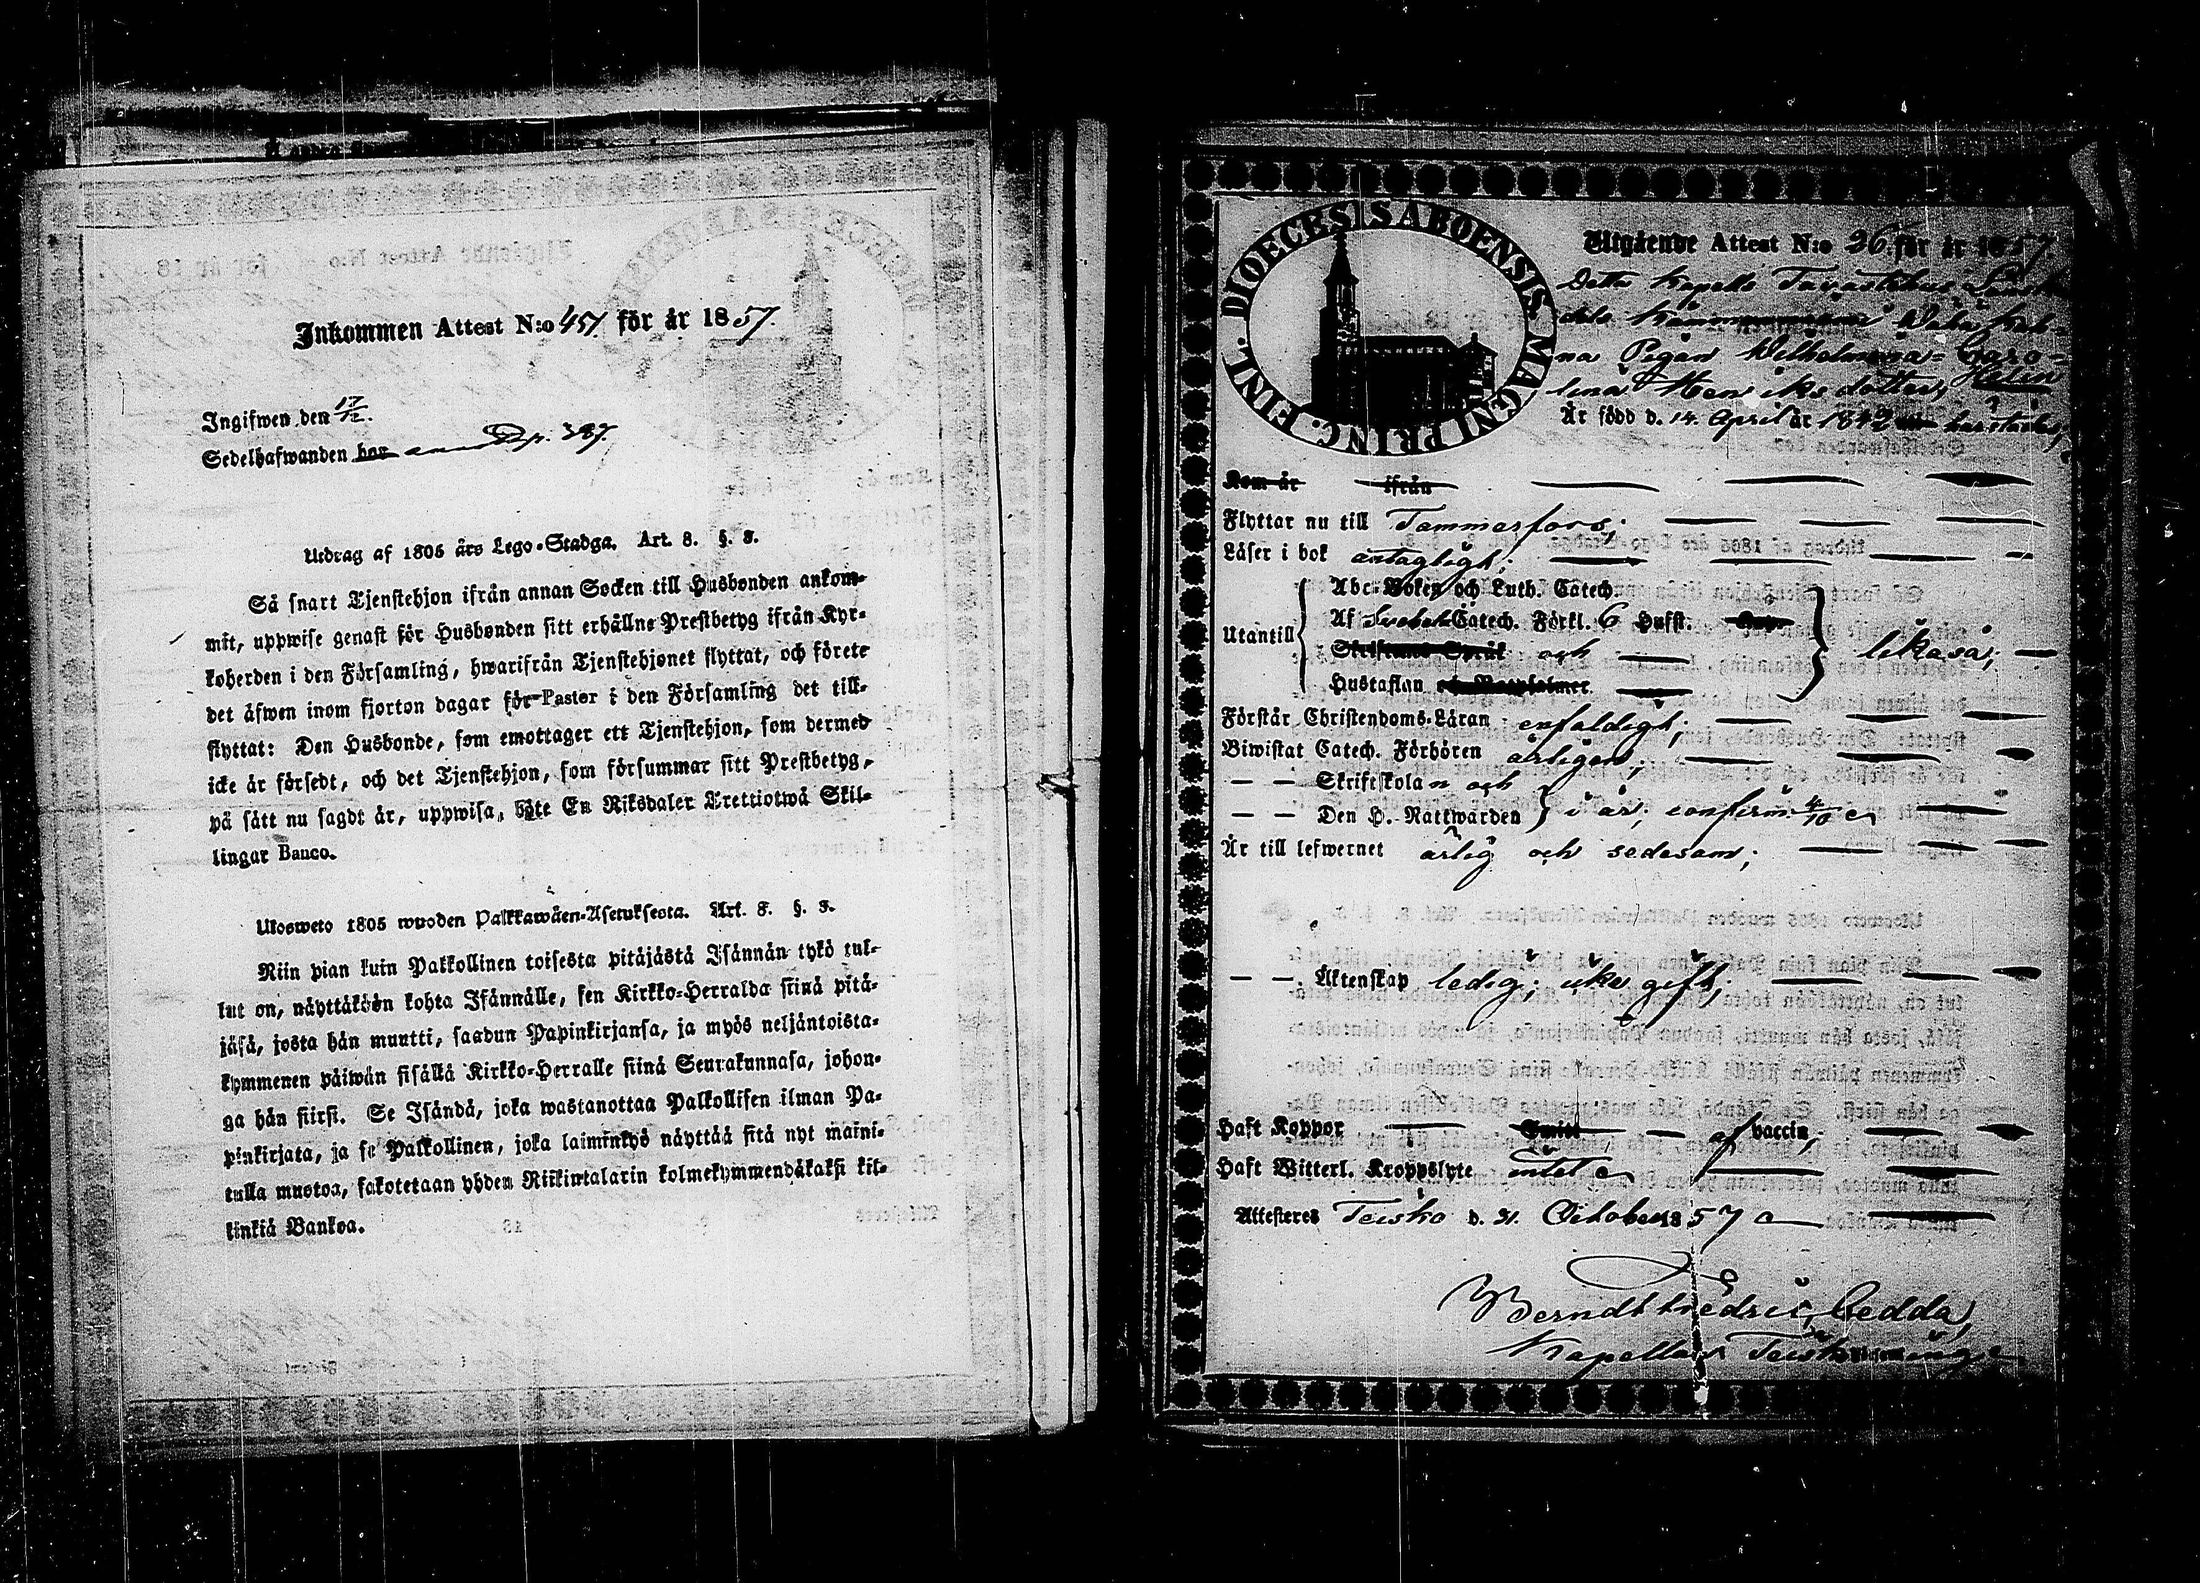 Inkommen Attest N:o 457. för år 1857.
Ingifwen den 17/12.
Sedelhafwanden bor p. 387.
Utdrag af 1805 års Lego-Stadga. Art. 8. §. 3.
Så snart Tjenstehjon ifrån annan Socken till Husbonden ankom-
mit, uppwise genast för Husbonden sitt erhållne Prestbetyg ifrån Kyr-
koherden i den Församling, hwarifrån Tjenstehjonet flyttat, och förete
det äfwen inom fjorton dagar för Pastor i den Församling det till-
flyttat: Den Husbonde, som emottager ett Tjenstehjon, som dermed
icke är försedt, och det Tjenstehjon, som försummar sitt Prestbetyg,
på sätt nu sagdt är, uppwisa, böte En Riksdaler Trettiotwå Skil-
lingar Banco.
Ulosweto 1805 wuoden Palkkawäen-Asetuksesta. Art. 8. §. 3.
Niin pian kuin Palkollinen toisesta pitäjästä Isännän tykö tul-
lut on, näyttäköön kohta Isännälle, sen Kirkko-Herralda siinä pitä-
jäsä, josta hän muutti, saadun Papinkirjansa, ja myös neljäntoista-
kymmenen päiwän sisällä Kirkko-Herralle siinä Seurakunnasa, johon-
ga hän siirsi. Se Isändä, joka wastanottaa Palkollisen ilman Pa-
pinkirjata, ja se Palkollinen, joka laiminlyö näyttää sitä nyt maini-
tulla muotoa, sakotetaan yhden Riikintalarin kolmekymmendäkaksi kil-
linkiä Bankoa.
DIOECESIS ABOENSIS. MAGNI PRINC. FINL.
Utgående Attest N:o 26. för år 1857.
Detta Kapells Tavastehus Läns
Pigan Wilhelmina Caro-
lina Henriksdotter, Helin
Är född d. 14. April år 1842 härstädes,
Kom år ifrån
Flyttar nu till Tammerfors;
Läser i bok antagligt;
Abc-Boken och Luth. Catech.
Utantill Af Svebelii Catech. Förkl. 6 Hufst. likaså;
och
Hustaflan
Förstår Christendoms-Läran enfaldigt;
Biwistat Catech. Förhören årligen;
— — Skriftskolan och
— — Den H. Nattwarden i år; confirm. 4/10
Är till lefwernet ärlig och sedesam;
— — Äktenskap ledig; icke gift;
Haft Koppor af vaccin;
Haft Witterl. Kroppslyte intet
Attesteres Teisko d. 31. October 1857
Berndt Fredric Cedda,
Kapellan i Teisko